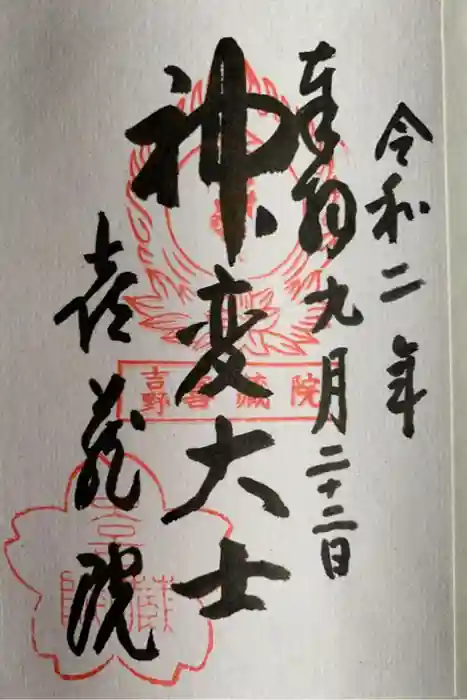 令和二年
奉拝
九月二十二日
神変大士
吉野喜蔵院
喜蔵院
喜蔵院